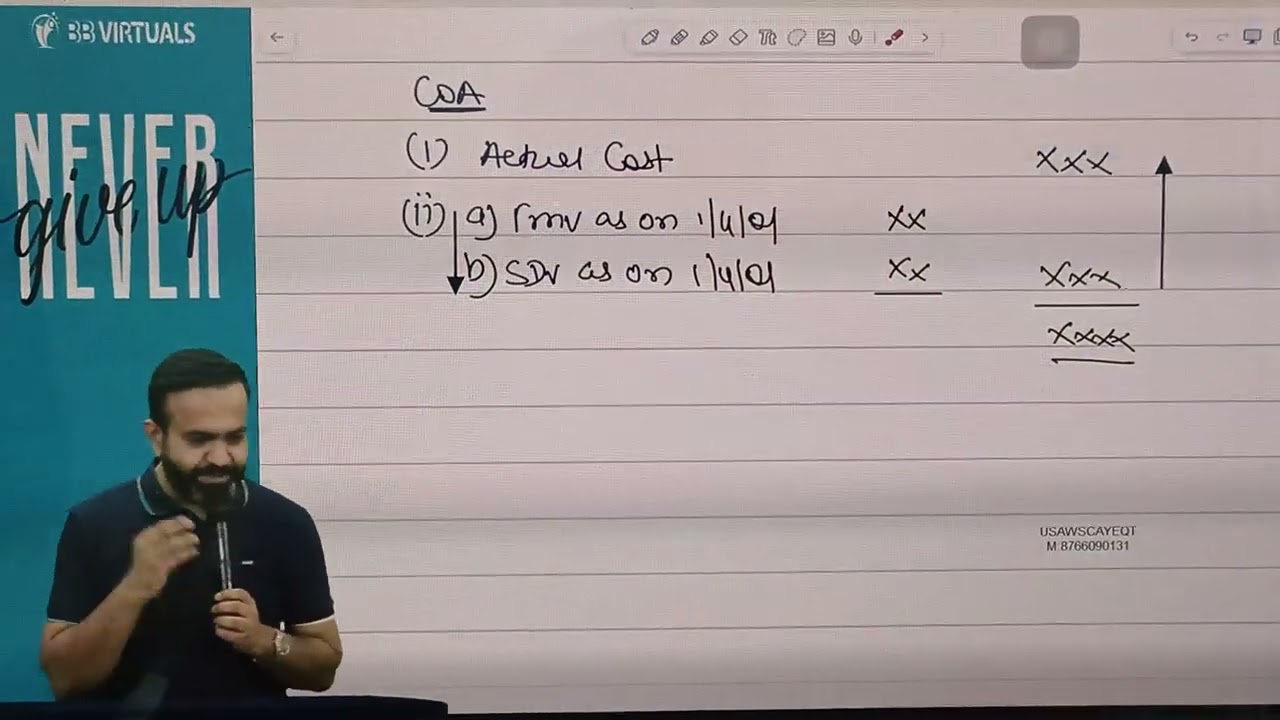 BB VIRTUALS
NEVER
give up
NEVER
COA
(i) Actual Cost XXX
(ii) a) FMV as on 1/4/01 XX
b) SDV as on 1/4/01 XX XXX
XXXX
USAWSCAYEQT
M:8766090131